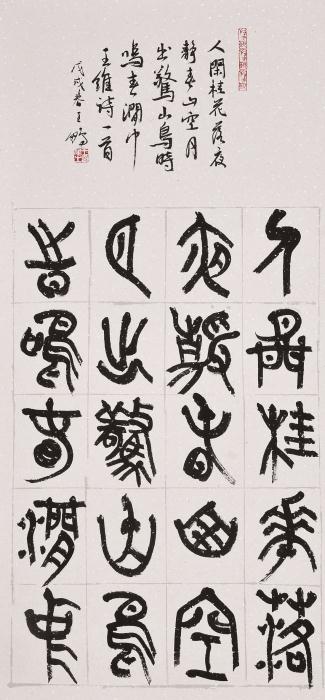 人閑桂花落夜
靜春山空月
出驚山鳥時
鳴春澗中
王維詩一首
戊戌春王鵬
人閑桂花落
夜靜春山空
月出驚山鳥
時鳴春澗中